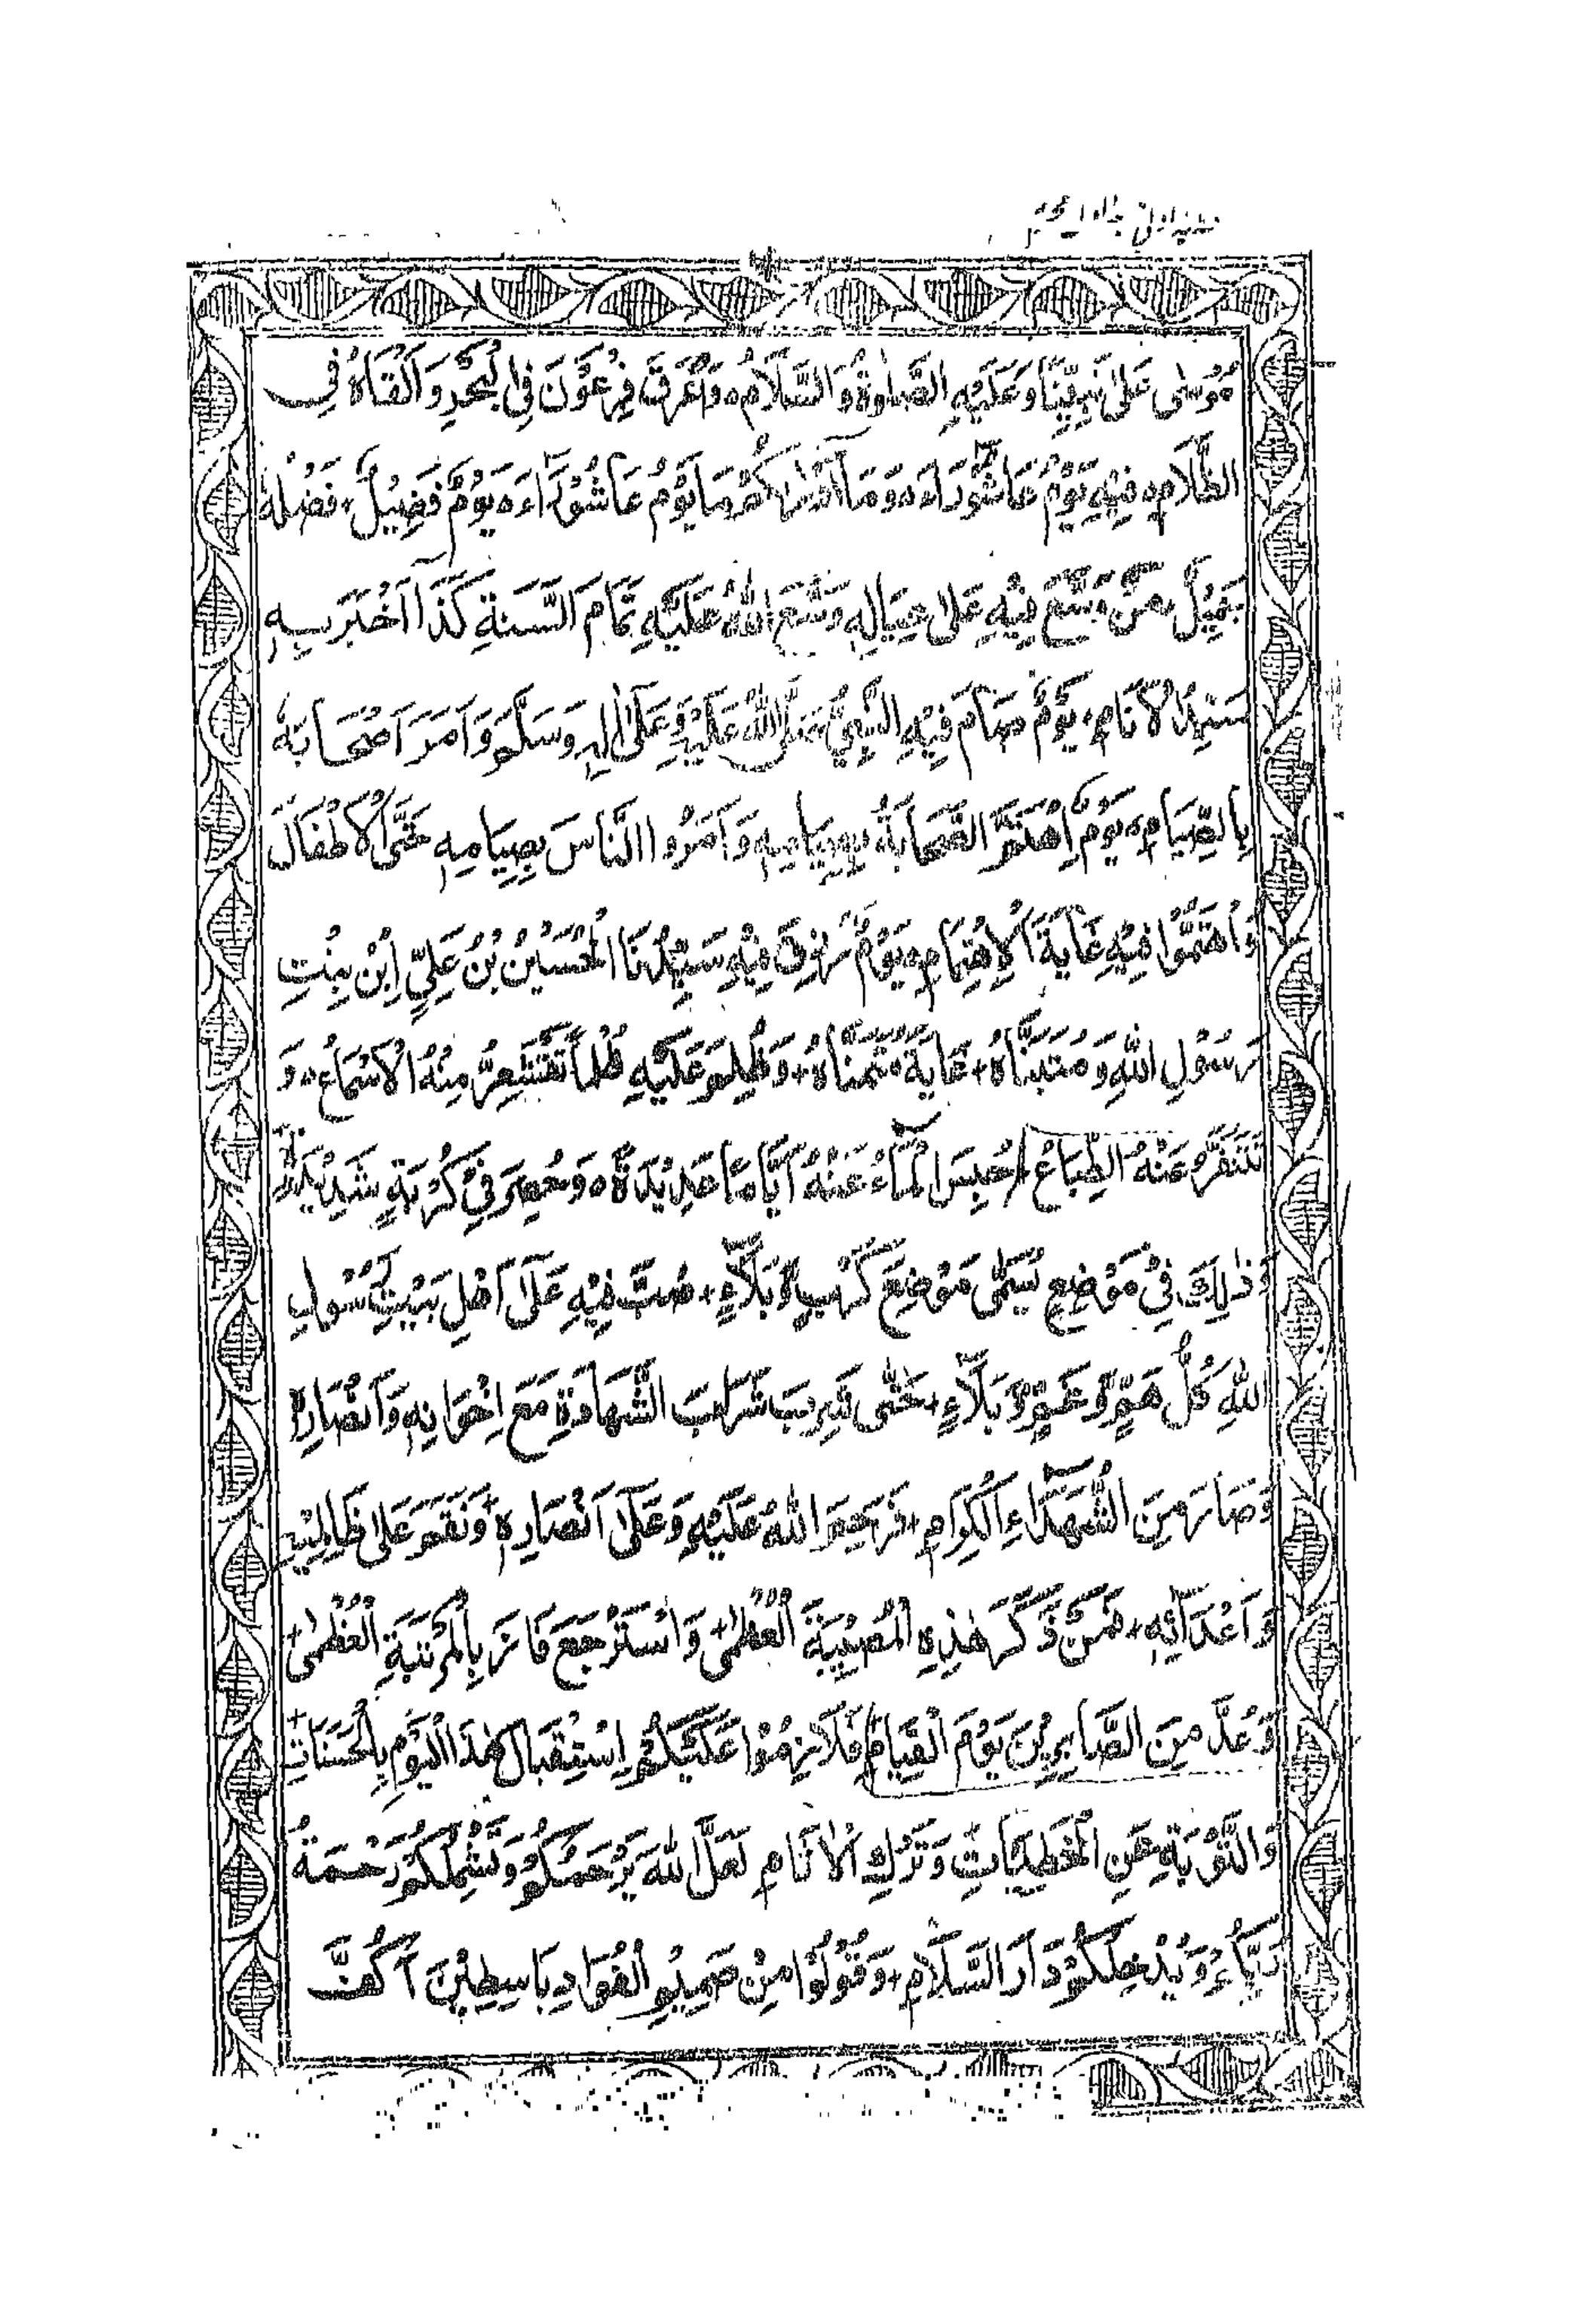 مُوْسٰى عَلٰى نَبِيِّنَا وَعَلَيْهِ الصَّلٰوةُ وَالسَّلَامُ ۰ وَاَغْرَقَ فِرْعَوْنَ فِي الْبَحْرِ وَاَلْقَاهُ فِي
الظَّلَامِ ۰ فِيْهِ يَوْمُ عَاشُوْرَاءَ ۰ وَمَا اَدْرٰاكُمْ مَا يَوْمُ عَاشُوْرَاءَ ۰ يَوْمٌ فَضِيْلٌ، فَضْلُهٗ
جَمِيْلٌ، مَنْ وَسَّعَ فِيْهِ عَلٰى عِيَالِهٖ وَسَّعَ اللّٰهُ عَلَيْهِ تَمَامَ السَّنَةِ كَذَا اَخْبَرَ بِهٖ
سَيِّدُ الْاَنَامِ، يَوْمٌ صَامَ فِيْهِ النَّبِيُّ صَلَّى اللّٰهُ عَلَيْهِ وَعَلٰى اٰلِهٖ وَسَلَّمَ وَاَمَرَ اَصْحَابَهٗ
بِالصِّيَامِ، يَوْمٌ اِهْتَمَّ الصَّحَابَةُ بِصِيَامِهٖ وَاَمَرُوا النَّاسَ بِصِيَامِهٖ حَتَّى الْاَطْفَالَ
وَاهْتَمُّوْا فِيْهِ غَايَةَ الْاِهْتِمَامِ ۰ يَوْمٌ رُزِقَ فِيْهِ سَيِّدُنَا الْحُسَيْنُ بْنُ عَلِيٍّ اِبْنِ بِنْتِ
رَسُوْلِ اللّٰهِ وَمُتَبَنَّاهُ + غَايَةَ مُتَمَنَّاهُ + وَظُلِمَ عَلَيْهِ ظُلْمًا تَقْشَعِرُّ مِنْهُ الْاَسْمَاعُ ۰ وَ
تَتَنَفَّرُ عَنْهُ الطِّبَاعُ + حُبِسَ الْمَاءُ عَنْهُ اَيَّامًا عَدِيْدَةً ۰ وَحُصِرَ فِيْ كُرْبَةٍ شَدِيْدَةٍ
وَذٰلِكَ فِيْ مَوْضِعٍ يُسَمّٰى مَوْضِعَ كَرْبٍ وَّبَلَاءٍ + صُبَّ فِيْهِ عَلٰى اَهْلِ بَيْتِ رَسُوْلِ
اللّٰهِ كُلُّ هَمٍّ وَّغَمٍّ وَّبَلَاءٍ + حَتّٰى شَرِبَ شَرَابَ الشَّهَادَةِ مَعَ اِخْوَانِهٖ وَاَنْصَارِهٖ
وَصَارَ مِنَ الشُّهَدَاءِ الْكِرَامِ + فَرَحِمَ اللّٰهُ عَلَيْهِ وَعَلٰى اَنْصَارِهٖ + وَنَقَمَ عَلٰى ظَالِمِيْهِ
وَاَعْدَائِهٖ + فَمَنْ ذَكَرَ هٰذِهِ الْمُصِيْبَةَ الْعُظْمٰى + وَاسْتَرْجَعَ فَازَ بِالْمَرْتَبَةِ الْعُظْمٰى +
وَعُدَّ مِنَ الصَّابِرِيْنَ يَوْمَ الْقِيَامِ فَلَازِمُوْا عَلَيْكُمْ اِسْتِقْبَالَ هٰذَا الْيَوْمِ بِالْحَسَنَاتِ +
وَالتَّوْبَةِ عَنِ الْخَطِيْئَاتِ وَتَرْكِ الْاٰثَامِ لَعَلَّ اللّٰهَ يَرْحَمُكُمْ وَتَشْمِلُكُمْ رَحْمَةُ
رَبِّ وَيُدْخِلَكُمْ دَارَ السَّلَامِ + وَقُوْلُوْا مِنْ صَمِيْمِ الْفُوَادِ بَاسِطِيْنَ اَكُفَّ